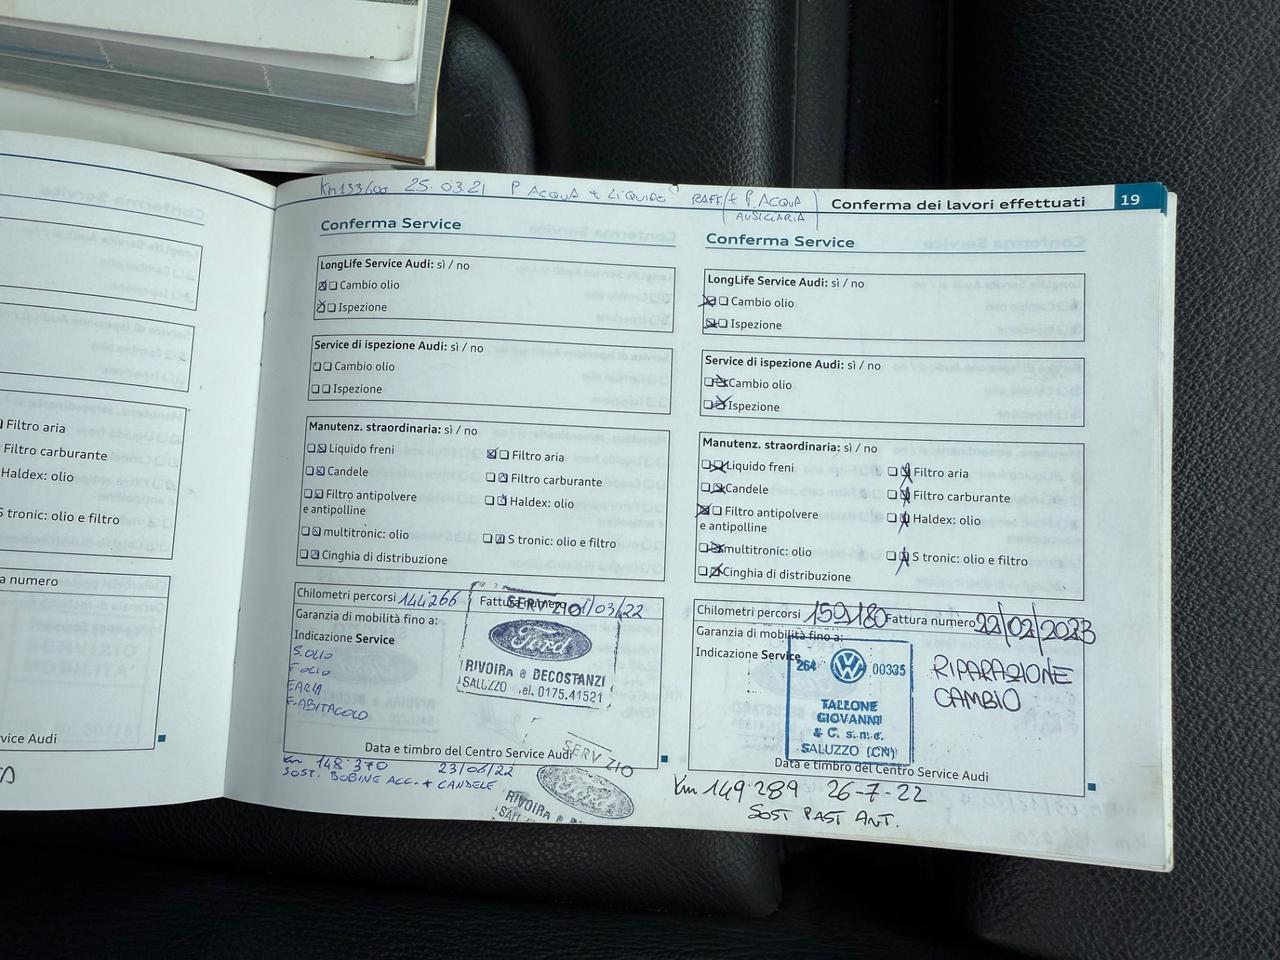 Km 133600 25.03.21 P ACQUA + LIQUIDO RAFF/+ P. ACQUA
AUSIGLIARIA
Conferma dei lavori effettuati 19
Conferma Service
LongLife Service Audi: sì / no
Cambio olio
Ispezione
Service di ispezione Audi: sì / no
Cambio olio
Ispezione
Manutenz. straordinaria: sì / no
Liquido freni
Filtro aria
Candele
Filtro carburante
Filtro antipolvere
e antipolline
Haldex: olio
multitronic: olio
S tronic: olio e filtro
Cinghia di distribuzione
Chilometri percorsi 144266 Fattura numero 01/03/22
Garanzia di mobilità fino a:
Indicazione Service
S.OLIO
F.OLIO
F.ARIA
F.ABITACOLO
SERVIZIO
Ford
RIVOIRA e DECOSTANZI
SALUZZO Tel. 0175.41521
Data e timbro del Centro Service Audi
Km 148.370 23/06/22
SOST. BOBINE ACC. + CANDELE
SERVIZIO
Ford
RIVOIRA
Conferma Service
LongLife Service Audi: sì / no
Cambio olio
Ispezione
Service di ispezione Audi: sì / no
Cambio olio
Ispezione
Manutenz. straordinaria: sì / no
Liquido freni
Filtro aria
Candele
Filtro carburante
Filtro antipolvere
e antipolline
Haldex: olio
multitronic: olio
S tronic: olio e filtro
Cinghia di distribuzione
Chilometri percorsi 159180 Fattura numero 22/02/2023
Garanzia di mobilità fino a:
Indicazione Service
264 00335
TALLONE
GIOVANNI
& C. s.n.c.
SALUZZO (CN)
RIPARAZIONE
CAMBIO
Data e timbro del Centro Service Audi
Km 149.289 26-7-22
SOST PAST ANT.
Filtro aria
Filtro carburante
Haldex: olio
S tronic: olio e filtro
a numero
vice Audi